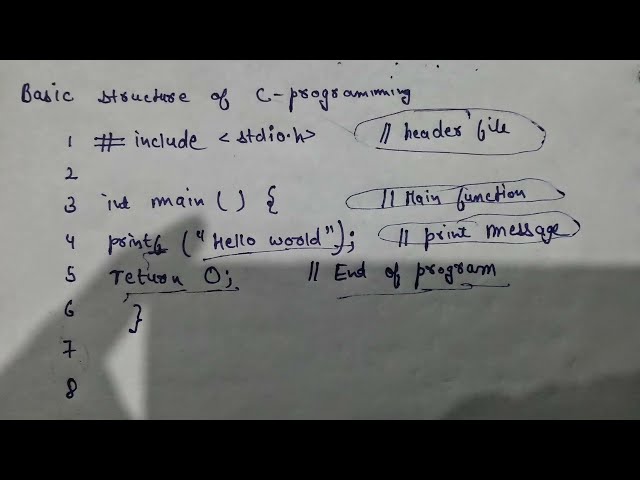 Basic structure of C-programming
1 # include <stdio.h> // header file
2
3 int main () { // Main function
4 printf ("Hello woorld"); // print message
5 return 0; // End of program
6 }
7
8